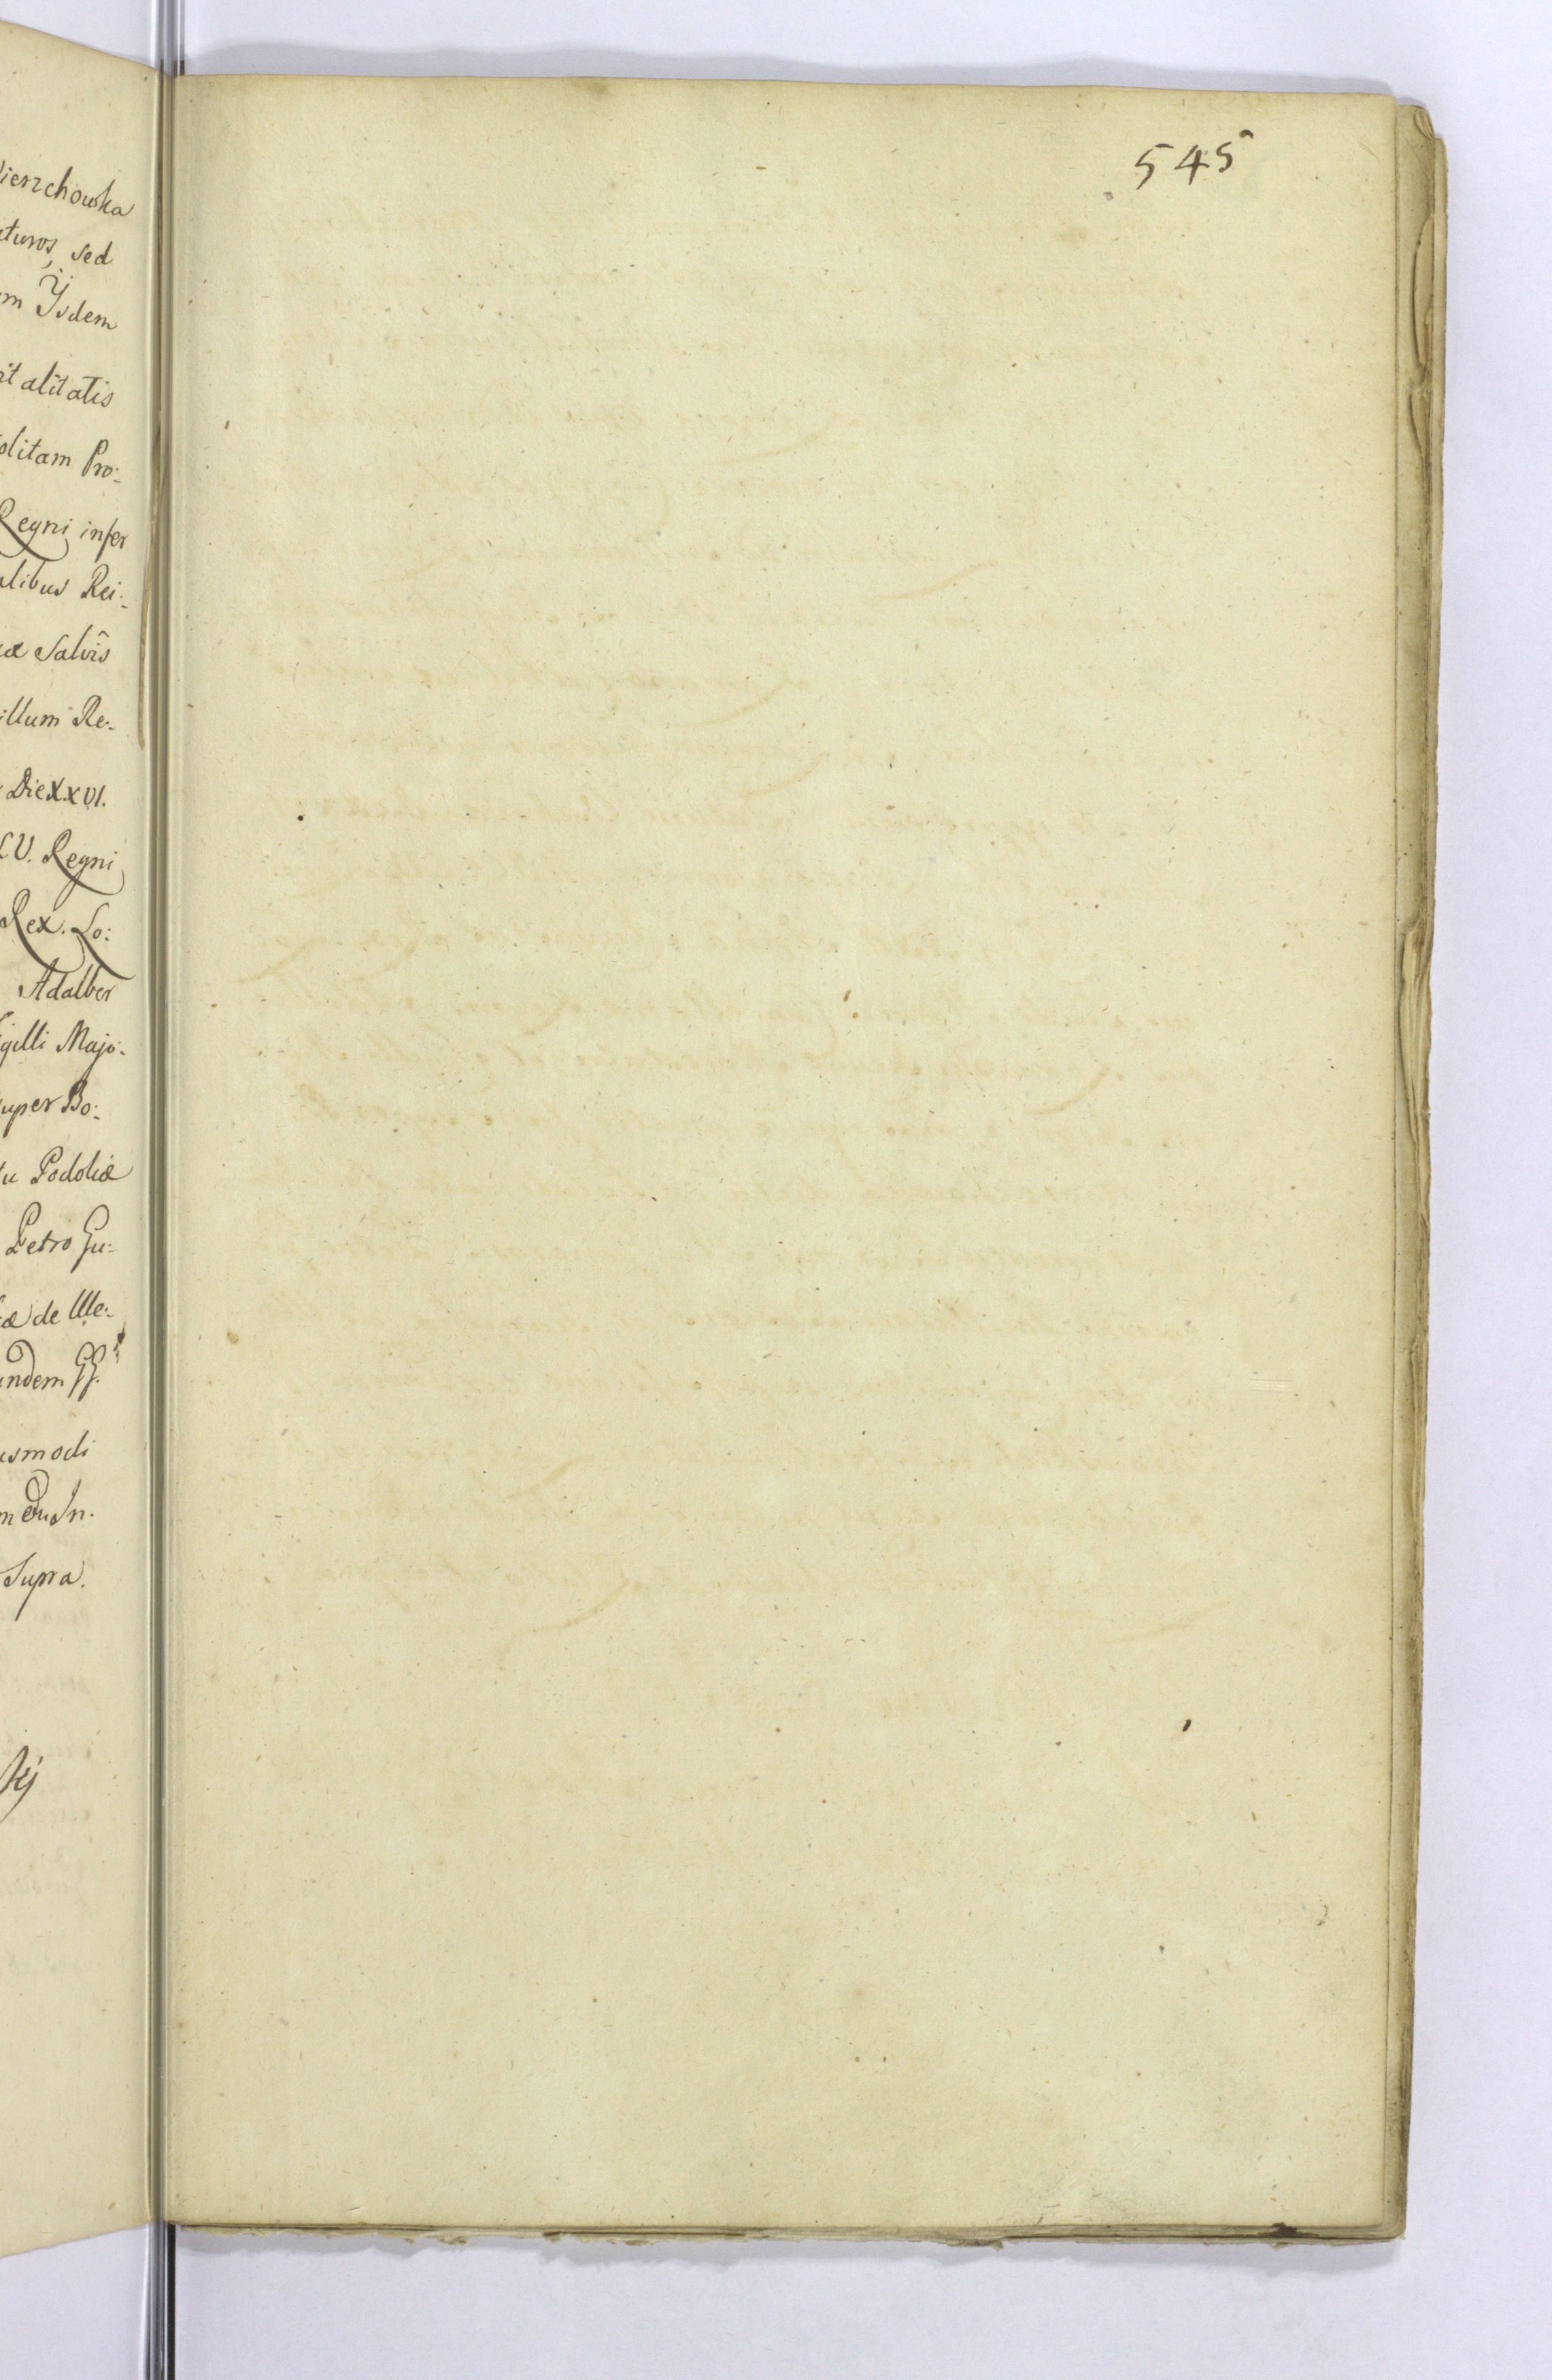 ierzchowka
turos, sed
m Ÿsdem
italitatis
olitam Pro:
Regni infer
alibus Rei:
æ Salvis
illum Re:
Die XXVI.
LV. Regni
Rex. Lo:
Adalber
igilli Majo:
super Bo:
tu Podoliæ
Petro Gu:
æ de We:
undem GG.
usmodi
Supra.
kj
545